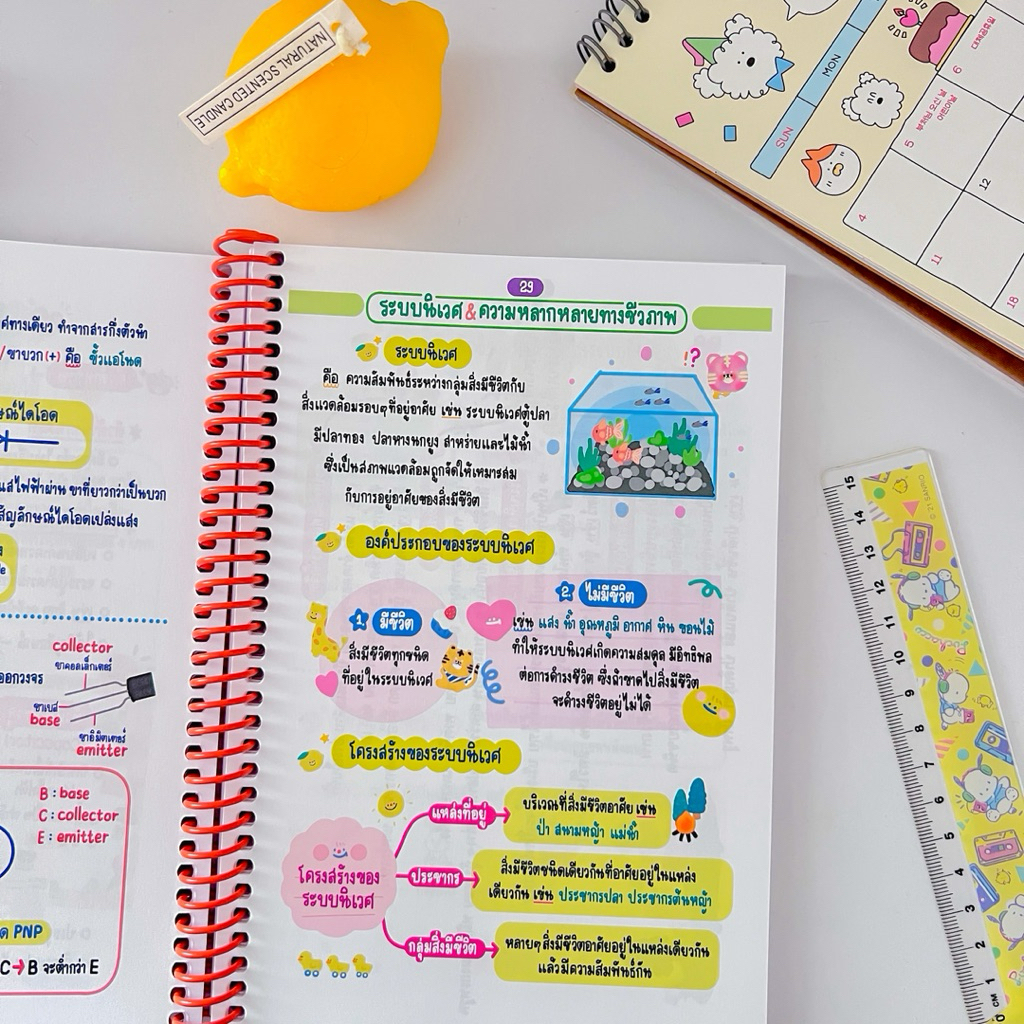 NATURAL SCENTED CANDLE
SUN
MON
4
5
6
11
12
18
์ทางเดียว ทำจากสารกึ่งตัวนำ
/ขาบวก(+) คือ ขั้วแอโนด
ษณ์ไดโอด
แสไฟฟ้าผ่าน ขาที่ยาวกว่าเป็นบวก
สัญลักษณ์ไดโอดเปล่งแสง
collector
ขาคอลเล็กเตอร์
ออกวงจร
ขาเบส
base
ขาอิมิตเตอร์
emitter
B : base
C : collector
E : emitter
ด PNP
C → B จะต่ำกว่า E
29
ระบบนิเวศ & ความหลากหลายทางชีวภาพ
ระบบนิเวศ
คือ ความสัมพันธ์ระหว่างกลุ่มสิ่งมีชีวิตกับ
สิ่งแวดล้อมรอบๆที่อยู่อาศัย เช่น ระบบนิเวศตู้ปลา
มีปลาทอง ปลาหางนกยูง สาหร่ายและไม้น้ำ
ซึ่งเป็นสภาพแวดล้อมถูกจัดให้เหมาะสม
กับการอยู่อาศัยของสิ่งมีชีวิต
!?
องค์ประกอบของระบบนิเวศ
1. มีชีวิต
สิ่งมีชีวิตทุกชนิด
ที่อยู่ในระบบนิเวศ
2. ไม่มีชีวิต
เช่น แสง น้ำ อุณหภูมิ อากาศ หิน ขอนไม้
ทำให้ระบบนิเวศเกิดความสมดุล มีอิทธิพล
ต่อการดำรงชีวิต ซึ่งถ้าขาดไปสิ่งมีชีวิต
จะดำรงชีวิตอยู่ไม่ได้
โครงสร้างของระบบนิเวศ
โครงสร้างของ
ระบบนิเวศ
แหล่งที่อยู่
บริเวณที่สิ่งมีชีวิตอาศัย เช่น
ป่า สนามหญ้า แม่น้ำ
ประชากร
สิ่งมีชีวิตชนิดเดียวกันที่อาศัยอยู่ในแหล่ง
เดียวกัน เช่น ประชากรปลา ประชากรต้นหญ้า
กลุ่มสิ่งมีชีวิต
หลายๆสิ่งมีชีวิตอาศัยอยู่ในแหล่งเดียวกัน
แล้วมีความสัมพันธ์กัน
15
14
13
12
11
10
9
8
7
6
5
4
3
2
1
0 CM